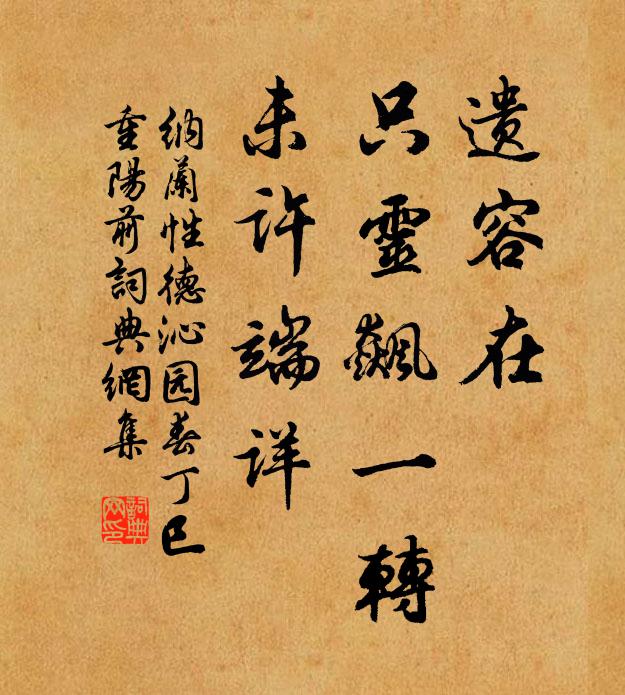 遗容在
只靈飆一轉
未许端详
纳蘭性德沁园春丁巳
重陽前詞典網集
詞典
网印